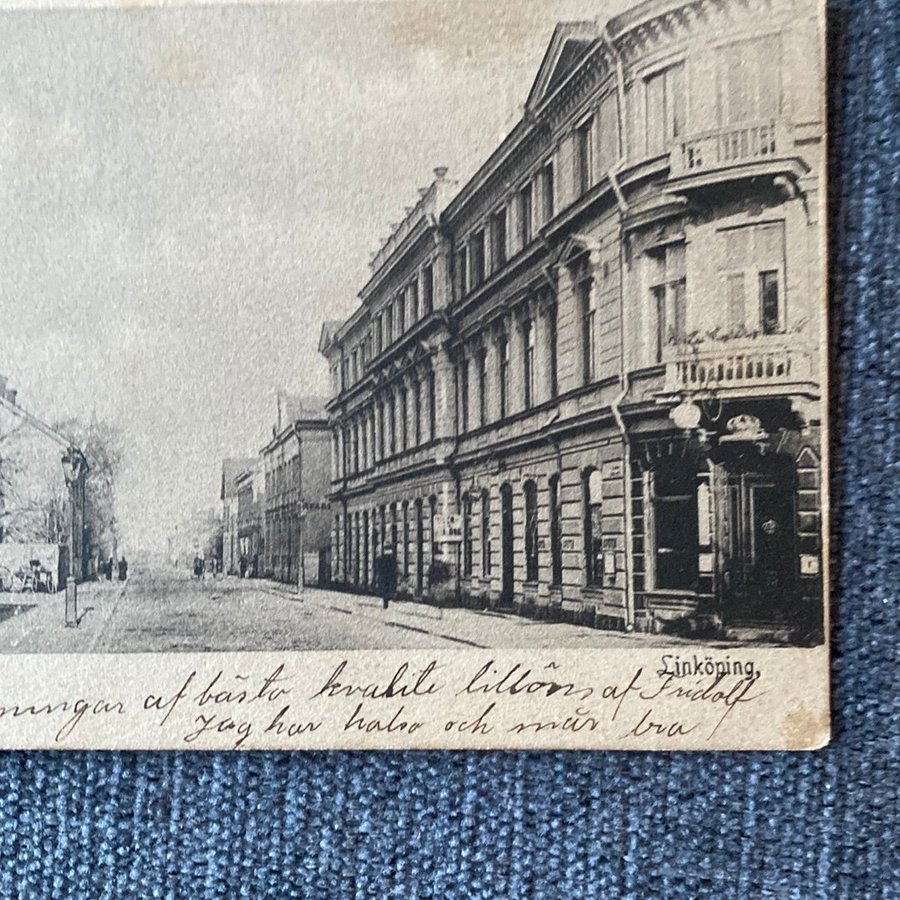 Linköping,
ningar af bästa kvalite tillöns af Fridolf
Jag har halsa och mår bra